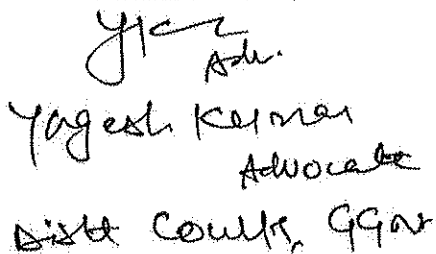 Adv.
Yogesh Kumar
Advocate
Distt Courts, GGN